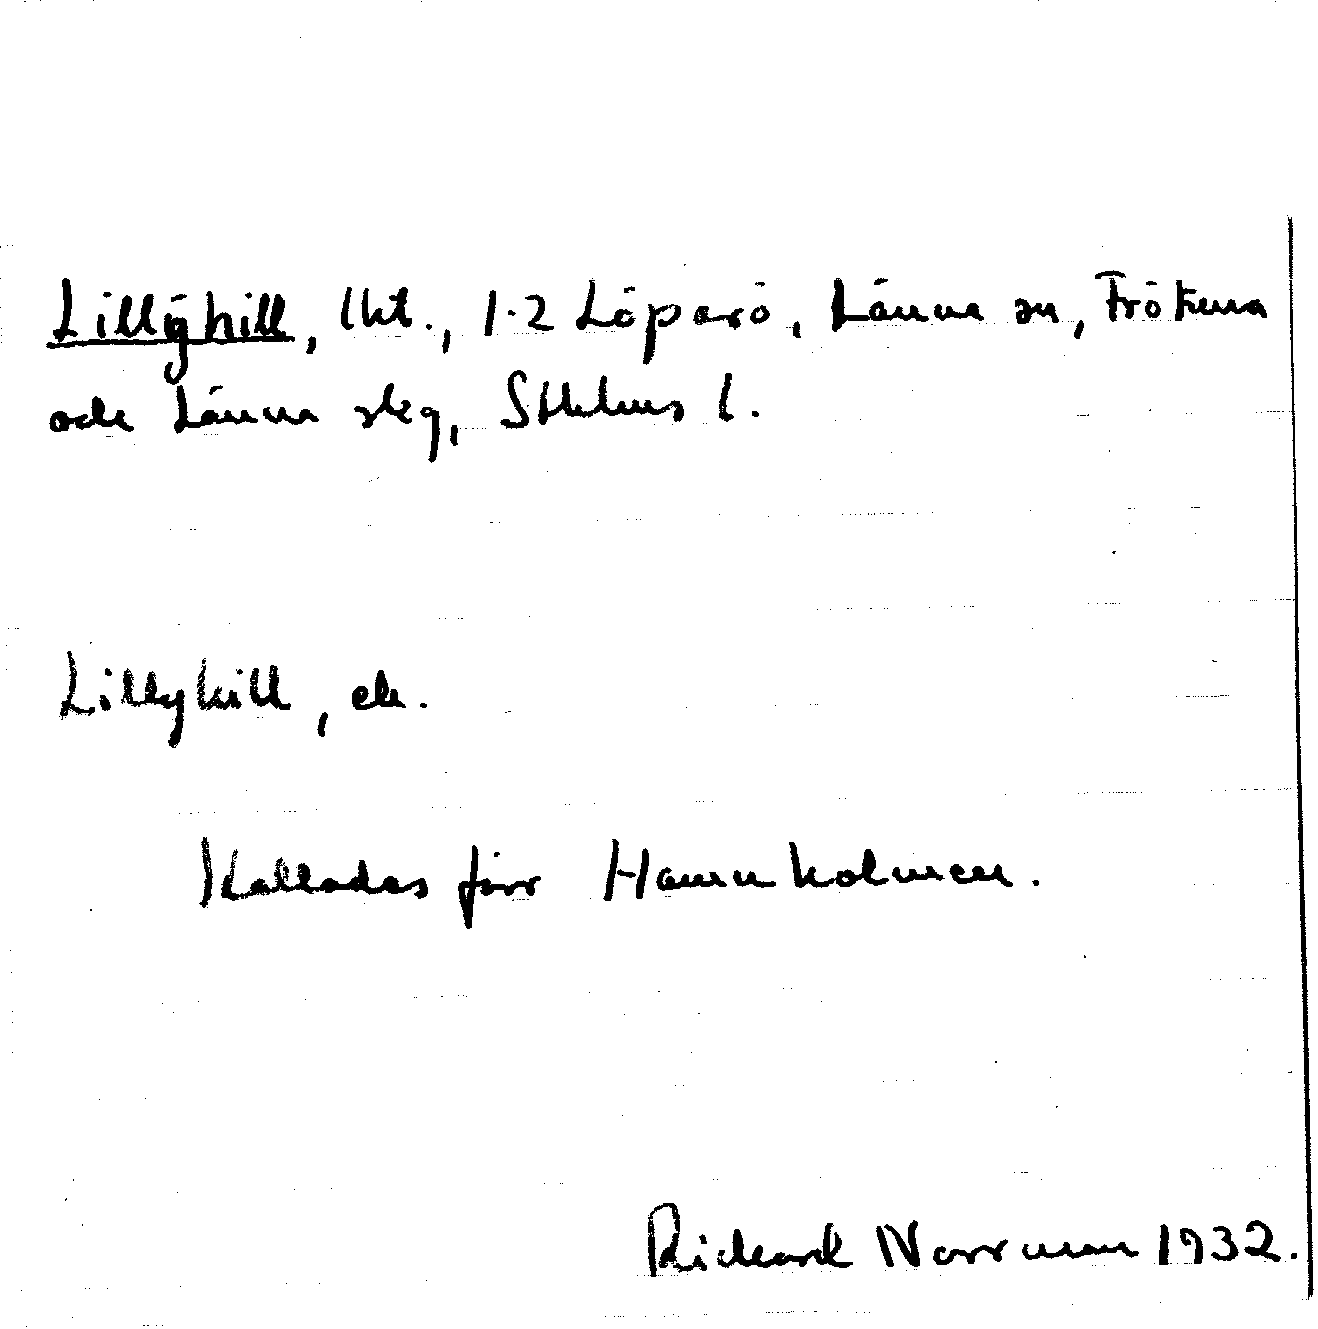 Lillyhill, lht., 1-2 Löparö, Länna sn, Frötuna
och Länna slg, Sthlms l.
Lillyhill, ek.
Kallades förr Hamnholmen.
Rickard Norrman 1932.